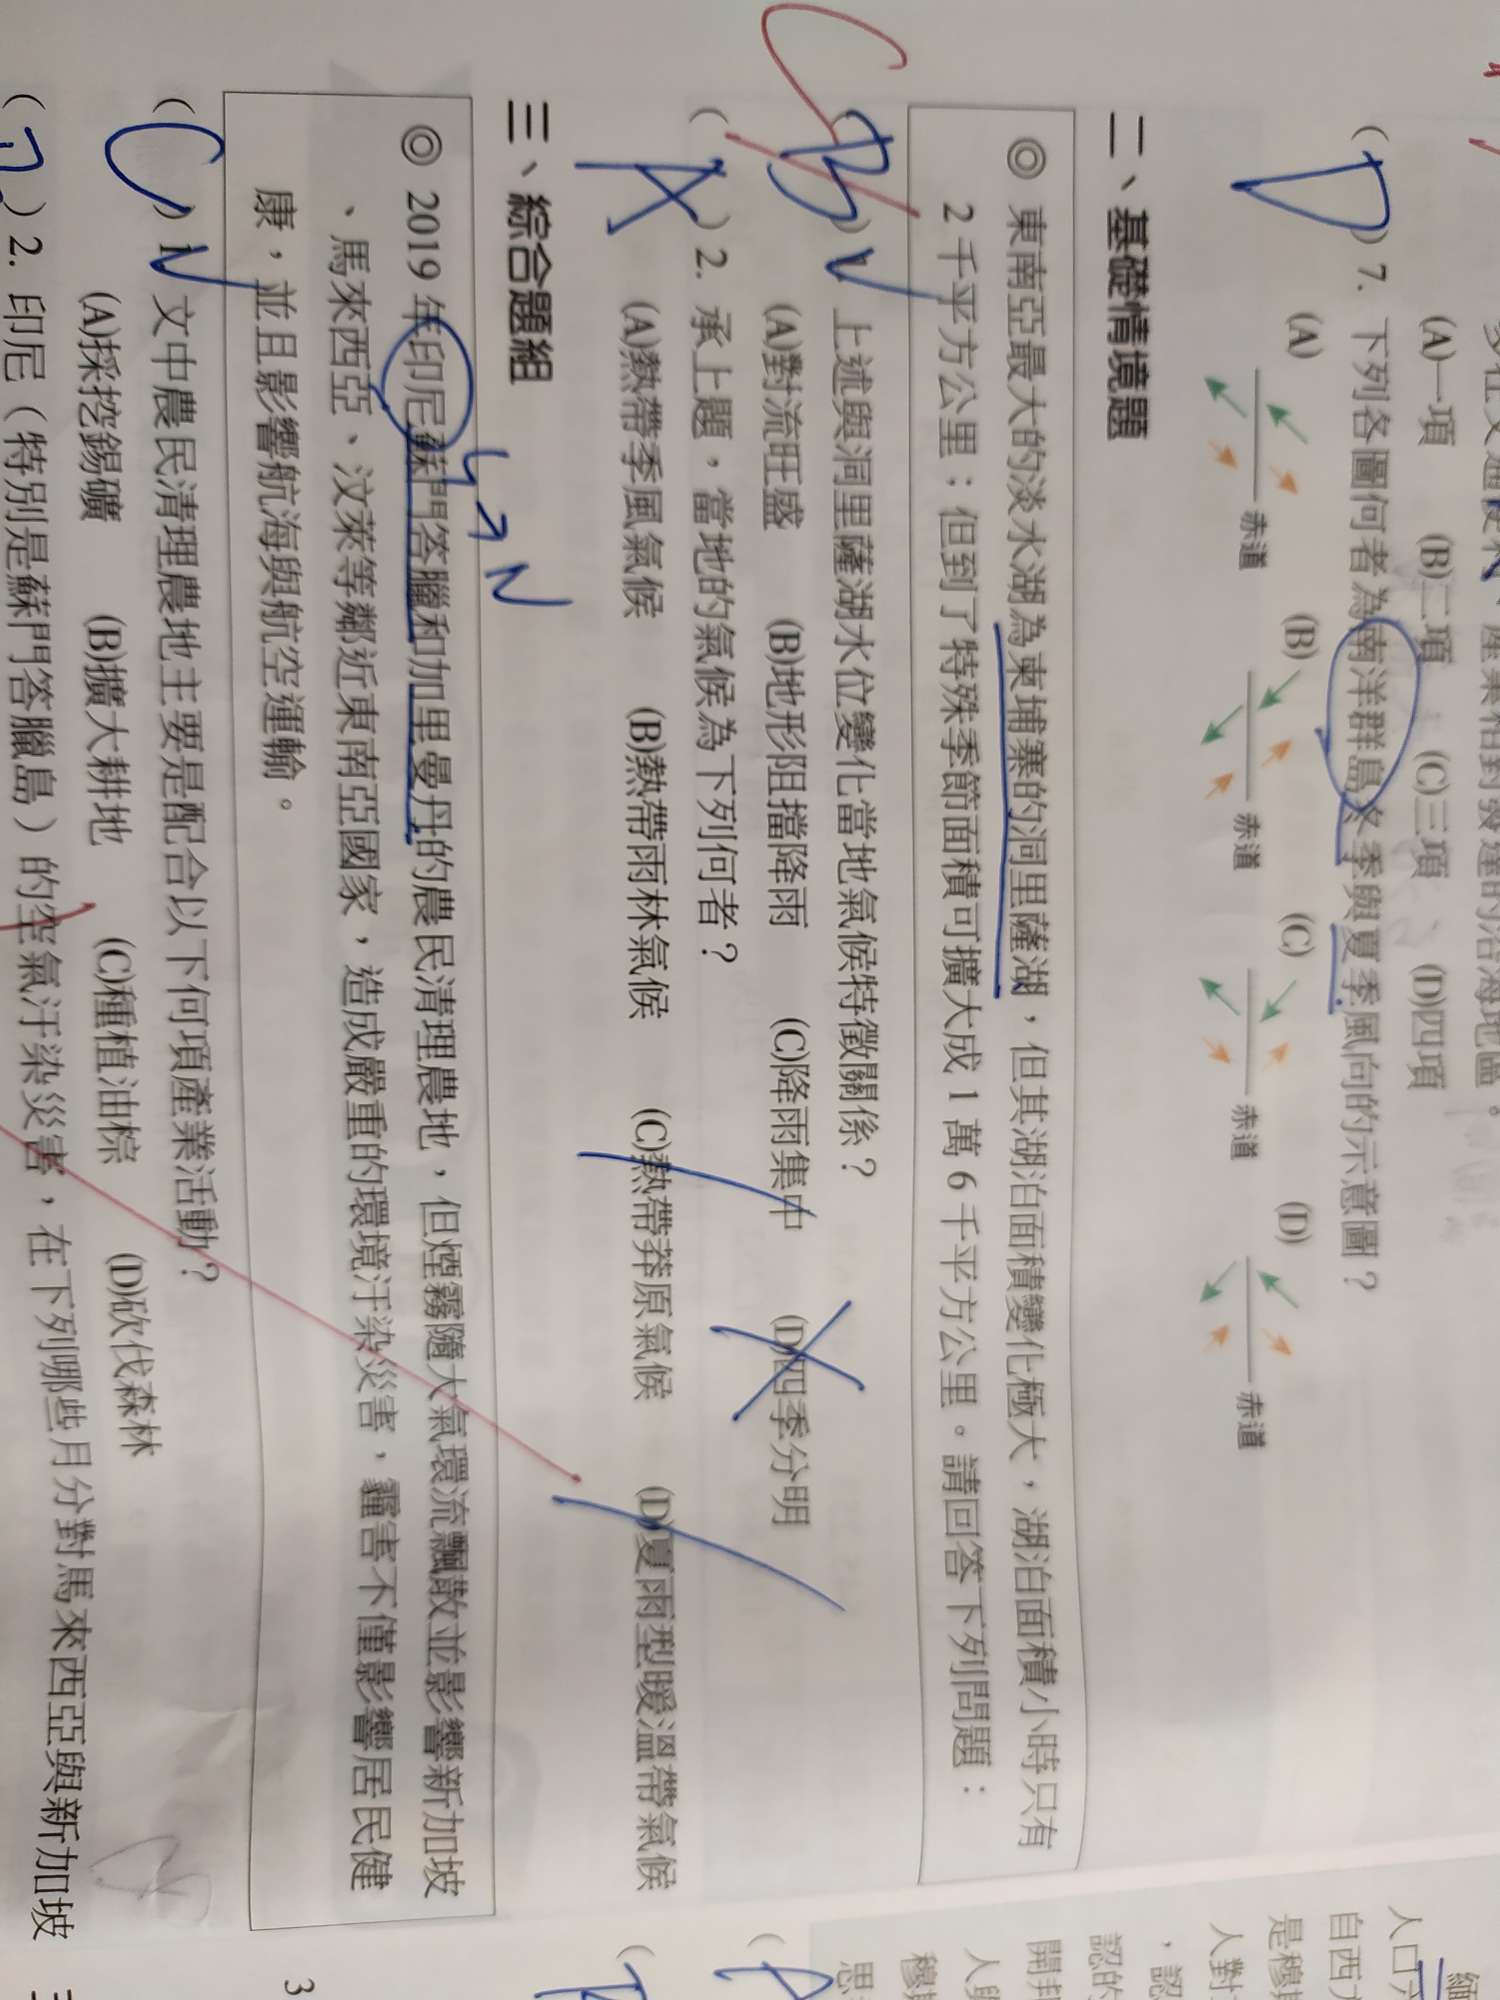 多在交通便利、產業相對發達的沿海地區。
(A)一項 (B)二項 (C)三項 (D)四項
( D ) 7. 下列各圖何者為南洋群島冬季與夏季風向的示意圖？
(A) 赤道 (B) 赤道 (C) 赤道 (D) 赤道
二、基礎情境題
◎ 東南亞最大的淡水湖為柬埔寨的洞里薩湖，但其湖泊面積變化極大，湖泊面積小時只有
2 千平方公里；但到了特殊季節面積可擴大成 1 萬 6 千平方公里。請回答下列問題：
C
( B ) 上述與洞里薩湖水位變化當地氣候特徵關係？
(A)對流旺盛 (B)地形阻擋降雨 (C)降雨集中 (D)四季分明
( A ) 2. 承上題，當地的氣候為下列何者？
(A)熱帶季風氣候 (B)熱帶雨林氣候 (C)熱帶莽原氣候 (D)夏雨型暖溫帶氣候
三、綜合題組
◎ 2019 年印尼蘇門答臘和加里曼丹的農民清理農地，但煙霧隨大氣環流飄散並影響新加坡
、馬來西亞、汶萊等鄰近東南亞國家，造成嚴重的環境汙染災害，霾害不僅影響居民健
康，並且影響航海與航空運輸。
( C ) 1. 文中農民清理農地主要是配合以下何項產業活動？
(A)採挖錫礦 (B)擴大耕地 (C)種植油棕 (D)砍伐森林
( ) 2. 印尼（特別是蘇門答臘島）的空氣汙染災害，在下列哪些月分對馬來西亞與新加坡
3